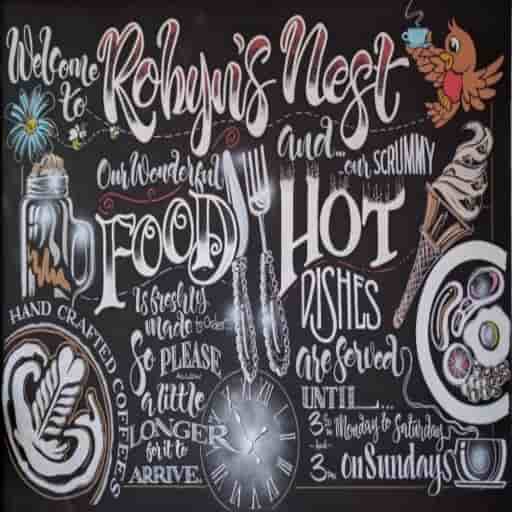 Welcome
to
Robyn's Nest
Our Wonderful
FOOD
Is freshly
made to Order
So PLEASE
allow
a little
LONGER
for it to
ARRIVE..
and... our SCRUMMY
HOT
DISHES
are served
UNTIL....
Monday to Saturday
but
3pm on Sundays
HAND CRAFTED COFFEES